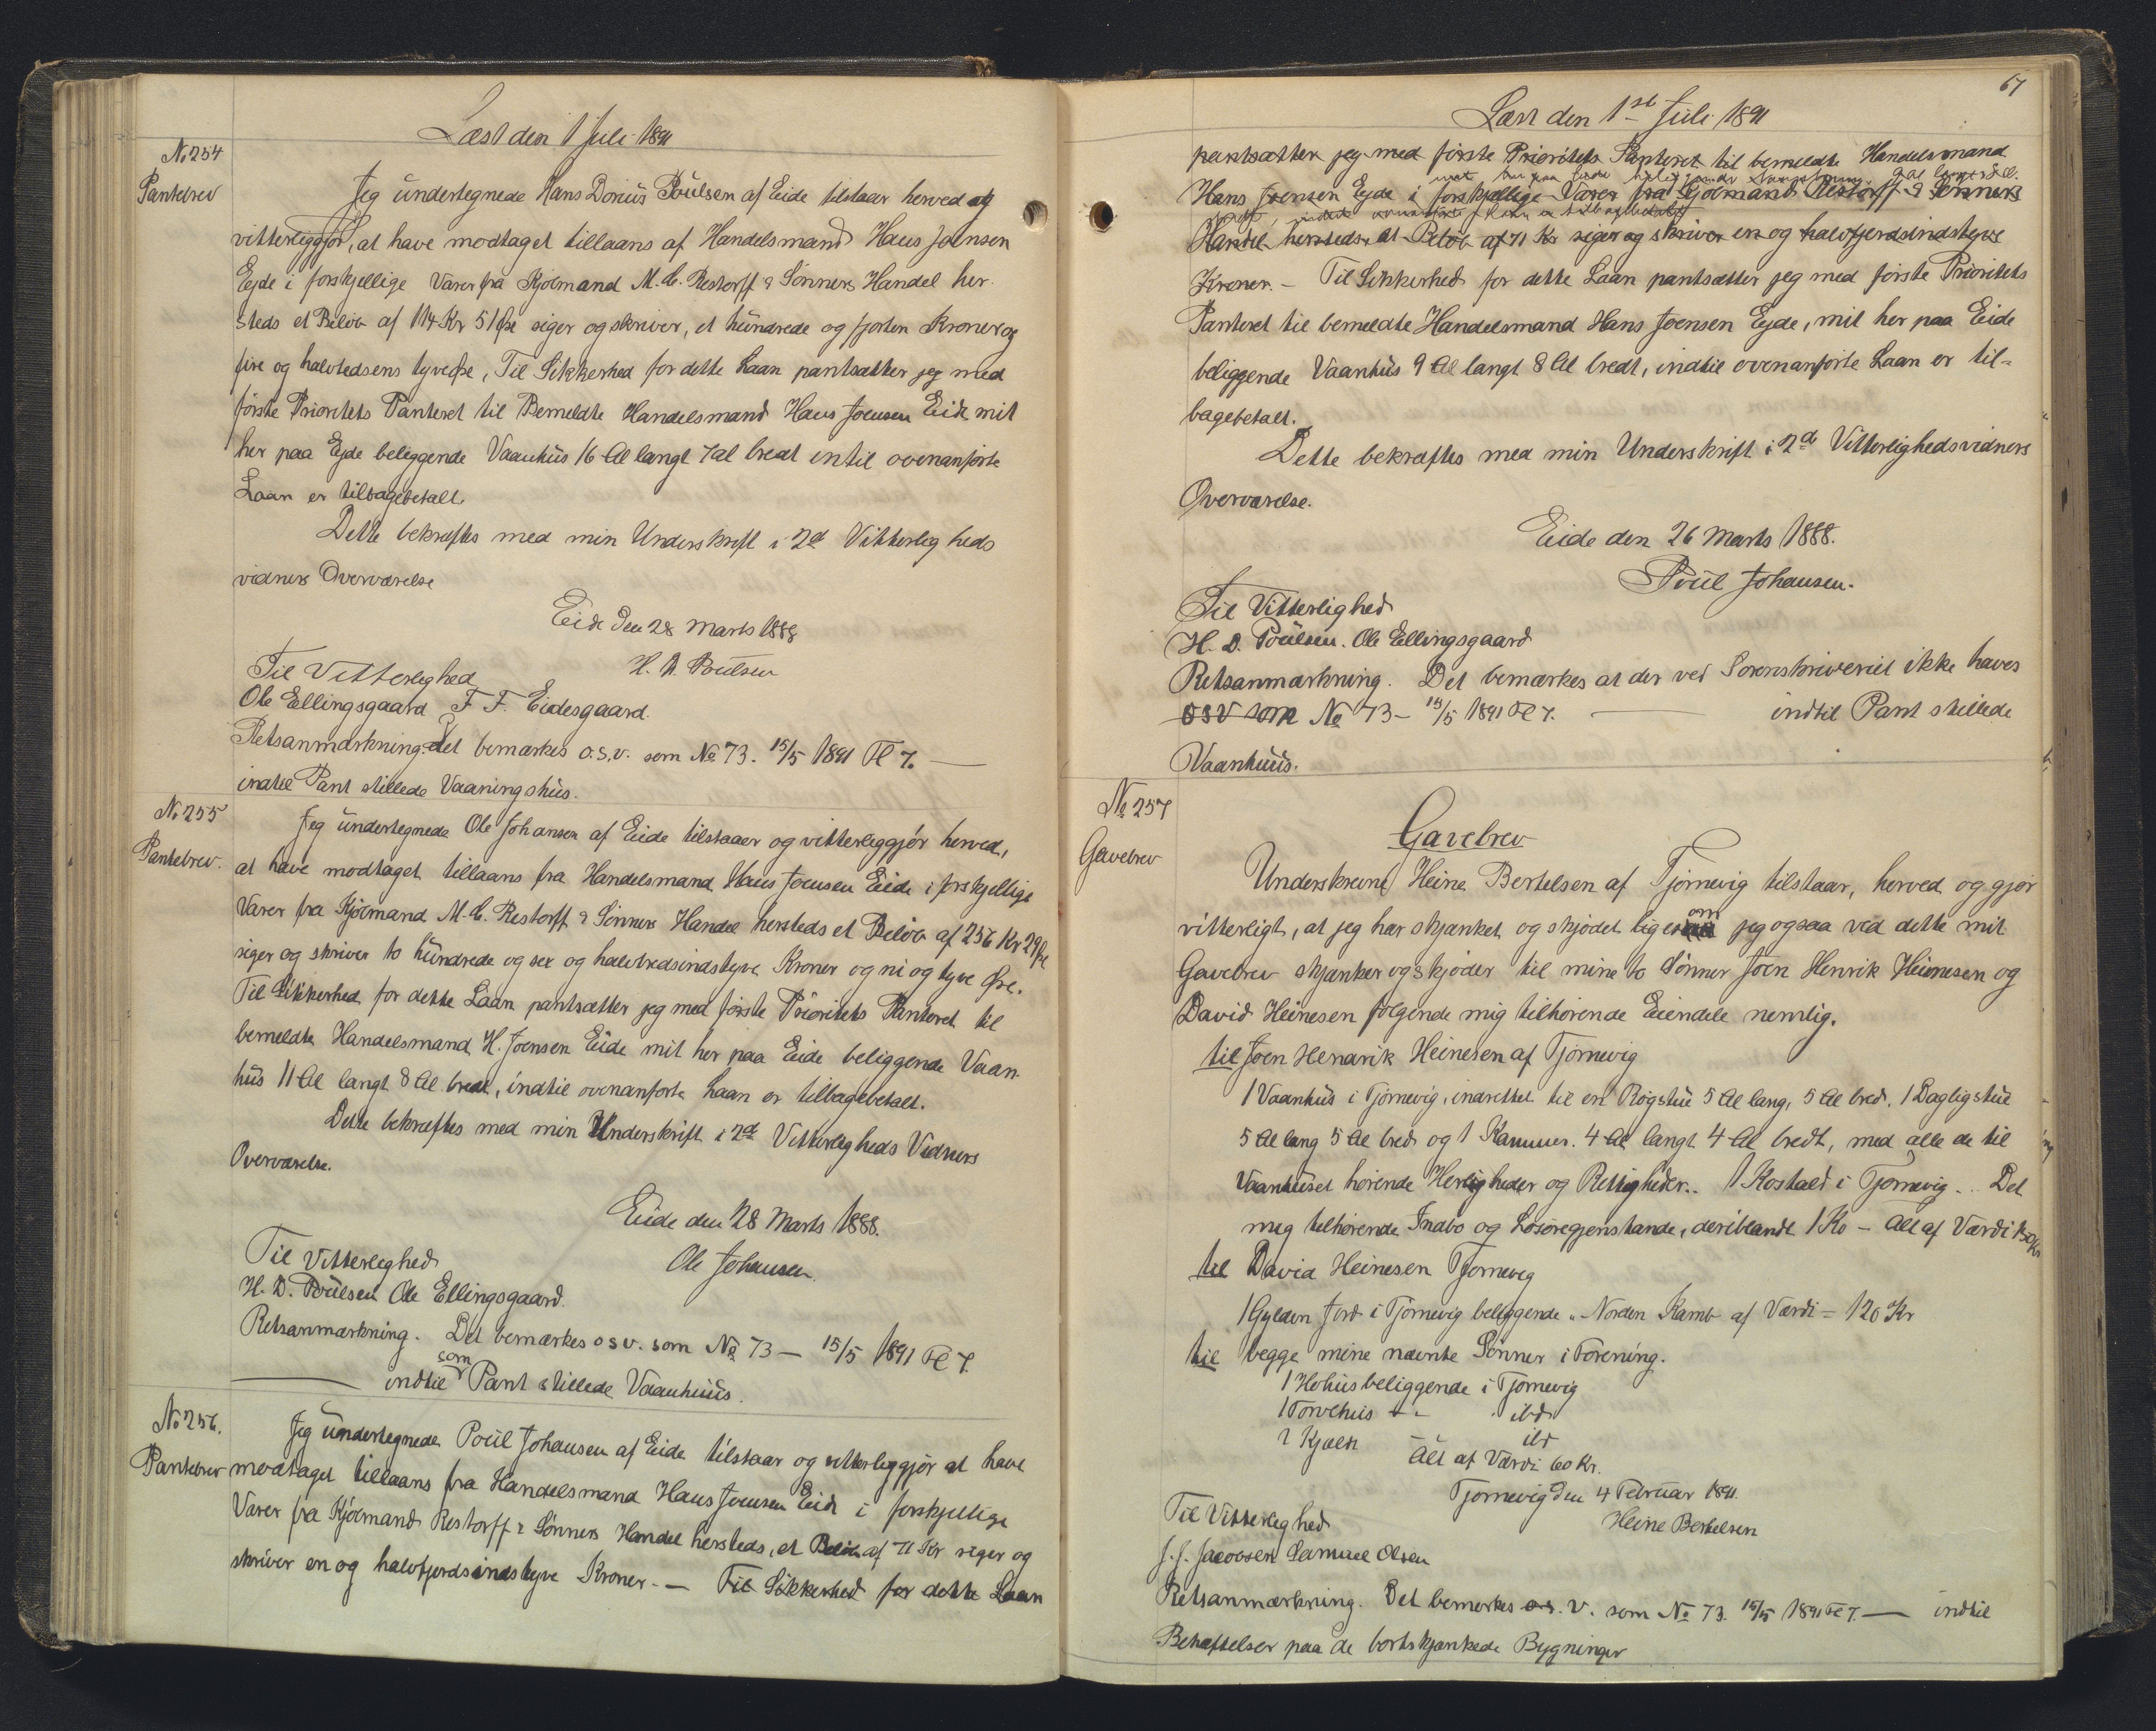 Læst den 1 Juli 1891
No 254
Pantebrev
Jeg undertegnede Hans Dorius Poulsen af Eide tilstaar herved og
vitterliggjør, at have modtaget tillaans af Handelsmand Hans Joensen
Eyde i forskjellige Varer fra Kjøbmand M. C. Restorff & Sønners Handel her
steds et Beløb af 114 Kr 51 Øre siger og skriver, et hundrede og fjorten Kroner og
fire og halvtedsens tyve Øre, Til Sikkerhed for dette Laan pantsætter jeg med
første Prioritets Panteret til Bemeldte Handelsmand Hans Joensen Eide mit
her paa Eyde beliggende Vaanhus 16 Al langt 7 al bredt intil ovenanførte
Laan er tilbagebetalt.
Dette bekræftes med min Underskrift i 2de Vitterligheds
vidners Overværelse
Eide den 28 Marts 1888
H. D. Poulsen
Til Vitterlighed
Ole Ellingsgaard F. F. Eidesgaard.
Retsanmærkning. det bemærkes o.s.v. som No 73. 15/5 1891 Fl 7. —
indtil Pant stillede Vaaningshus.
No 255
Pantebrev.
Jeg undertegnede Ole Johansen af Eide tilstaaer og vitterliggjør herved,
at have modtaget tillaans fra Handelsmand Hans Joensen Eide i forskjellige
Varer fra Kjøbmand M. C. Restorff & Sønners Handel hersteds et Beløb af 256 Kr 29 Øre
siger og skriver to hundrede og sex og halvtredsindstyve Kroner og ni og tyve Øre.
Til Sikkerhed for dette Laan pantsætter jeg med første Prioritets Panteret til
bemeldte Handelsmand H. Joensen Eide mit her paa Eide beliggende Vaan
hus 11 Al langt 8 Al bredt, indtil ovenanførte Laan er tilbagebetalt.
Dette bekræftes med min Underskrift i 2de Vitterligheds Vidners
Overværelse.
Eide den 28 Marts 1888.
Ole Johansen.
Til Vitterlighed
H. D. Poulsen Ole Ellingsgaard.
Retsanmærkning. Det bemærkes osv. som No 73 — 15/5 1891 Fl 7.
— indtil som Pant stillede Vaanhuus.
No 256.
Pantebrev
Jeg undertegnede Poul Johansen af Eide tilstaar og vitterliggjør at have
modtaget tillaans fra Handelsmand Hans Joensen Eide i forskjellige
Varer fra Kjøbmand Restorff & Sønners Handel hersteds, et Beløb af 71 Kr siger og
skriver en og halvfjerdsindstyve Kroner. — Til Sikkerhed for dette Laan
67
Læst den 1ste Juli 1891
pantsætter jeg med første Prioritets Panteret til bemeldte Handelsmand
mit her paa Eide beliggende 9 al langt 8 al.
Hans Joensen Eyde i forskjellige Varer fra Kjøbmand Restorff & Sønners
bredt, indtil ovenanførte Laan er tilbagebetalt
Handel hersteds, et Beløb af 71 Kr siger og skriver en og halvfjerdsindstyve
Kroner. — Til Sikkerhed for dette Laan pantsætter jeg med første Prioritets
Panteret til bemeldte Handelsmand Hans Joensen Eyde, mit her paa Eide
beliggende Vaanhus 9 Al langt 8 Al bredt, indtil ovenanførte Laan er til-
bagebetalt.
Dette bekræftes med min Underskrift i 2de Vitterlighedsvidners
Overværelse.
Eide den 26 Marts 1888.
Poul Johansen.
Til Vitterlighed
H. D. Poulsen. Ole Ellingsgaard
Retsanmærkning. Det bemærkes at der ved Sorenskriveriet ikke haves
osv som No 73 — 15/5 1891 Fl 7. — indtil Pant stillede
Vaanhuus.
No 257
Gavebrev
Gavebrev
Underskrevne Heine Bertelsen af Tjørnevig tilstaar, herved og gjør
vitterligt, at jeg har skjænket og skjødet ligesom jeg ogsaa ved dette mit
Gavebrev skjænker og skjøder til mine to Sønner Joen Henrik Heinesen og
David Heinesen følgende mig tilhørende Eiendele nemlig.
til Joen Hendrik Heinesen af Tjørnevig
1 Vaanhus i Tjørnevig, indrettet til en Røgstue 5 Al lang, 5 Al bred. 1 Dagligstue
5 Al lang 5 Al bred og 1 Kammer. 4 Al langt 4 Al bredt, med alle de til
Vaanhuset hørende Herligheder og Rettigheder.. 1 Kostald i Tjørnevig. . Det
mig tilhørende Indbo og Løsøregjenstande, deriblandt 1 Ko — Alt af Værdi 150 Kr
til David Heinesen Tjørnevig
1 Gylden Jord i Tjørnevig beliggende „Norden Kamb af Værdi = 120 Kr
til begge mine nævnte Sønner i Forening.
1 Høhus beliggende i Tjørnevig
1 Tørvehus — - ibd
2 Kjæld ibd
Alt af Værdi 60 Kr.
Tjørnevig den 4 Februar 1891.
Heine Bertelsen
Til Vitterlighed
J. J. Jacobsen Samuel Olsen
Retsanmærkning. Det bemerkes o.s.v. som No 73. 15/5 1891 Fl 7. — indtil
Behæftelser paa de bortskjænkede Bygninger